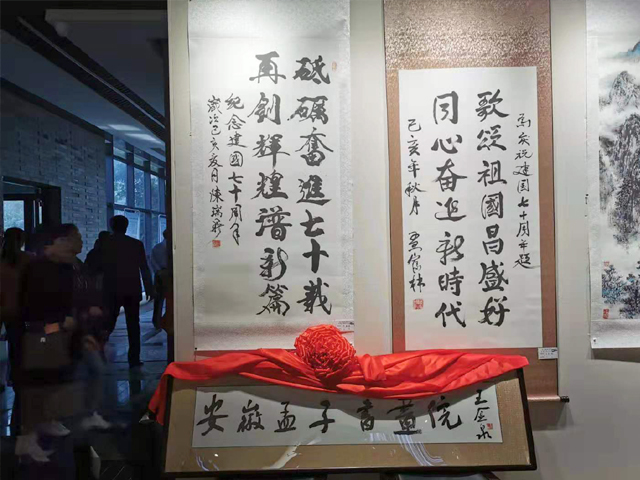 砥礪奮進七十載
再創輝煌譜新篇
紀念建國七十周年
歲次己亥夏月 陳瑞
为庆祝建国七十周年题
歌颂祖國昌盛好
同心奋進新時代
己亥年秋月
安徽孟子書畫院
王金泉